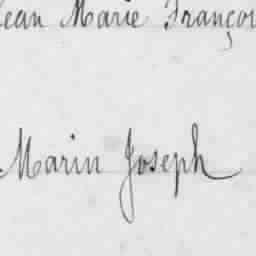 Jean Marie Françoi
Marin Joseph